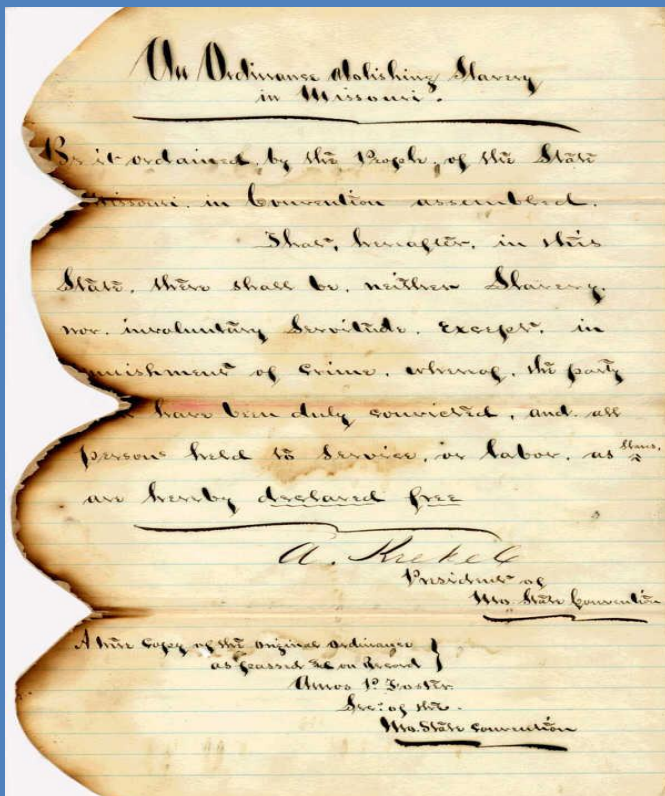 An Ordinance Abolishing Slavery
in Missouri.
Be it ordained, by the People, of the State
Missouri, in Convention assembled.
That, hereafter, in this
State, there shall be, neither Slavery,
nor, involuntary Servitude, except, in
unishment of crime, whereof, the party
have been duly convicted, and, all
persons held to Service, or labor, as Slaves,
are hereby declared free
A. Krekel
President of
Mo. State Convention
A true copy of the original Ordinance
as passed & on Record
Amos P. Foster
Sec. of the
Mo. State Convention